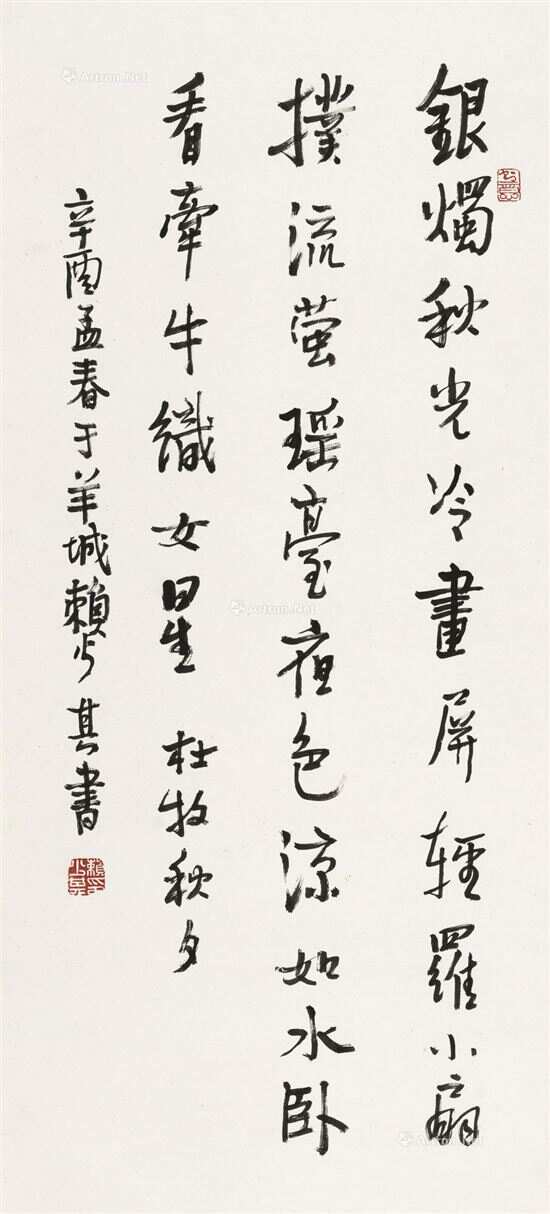 銀燭秋光冷畫屏輕羅小扇
撲流萤瑶臺夜色涼如水卧
看牽牛織女星 杜牧秋夕
辛酉孟春于羊城賴少其書
賴少其
Artron.Net
Artron.Net
Artron.Net